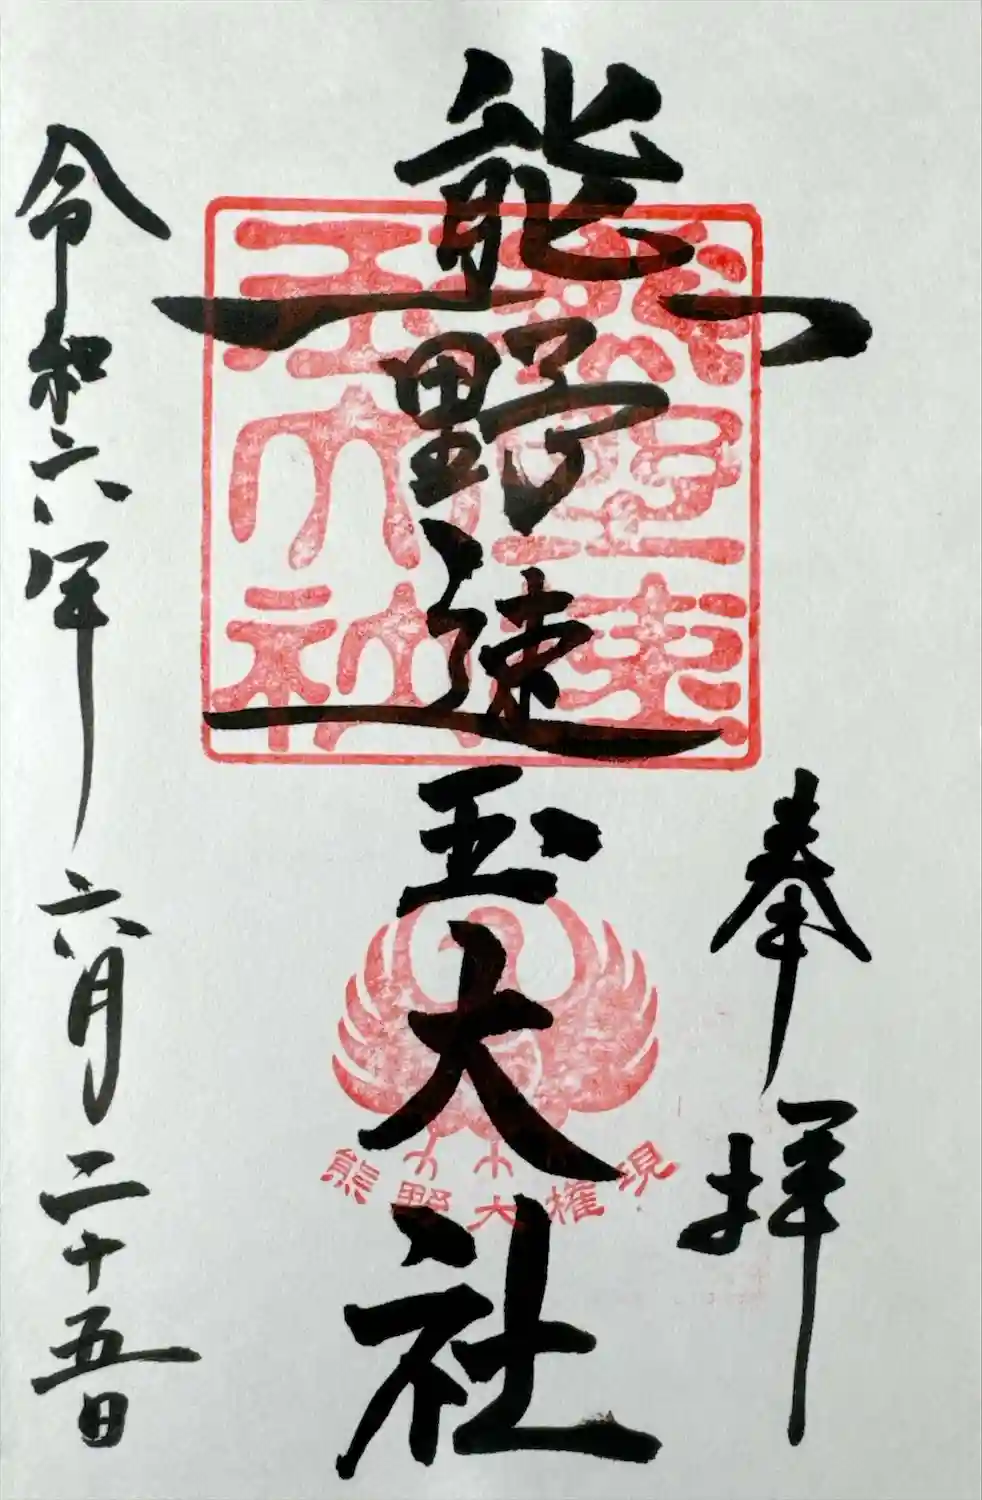 奉拝
熊野速玉大社
熊野速
玉大社
熊野大権現
令和六年六月二十五日